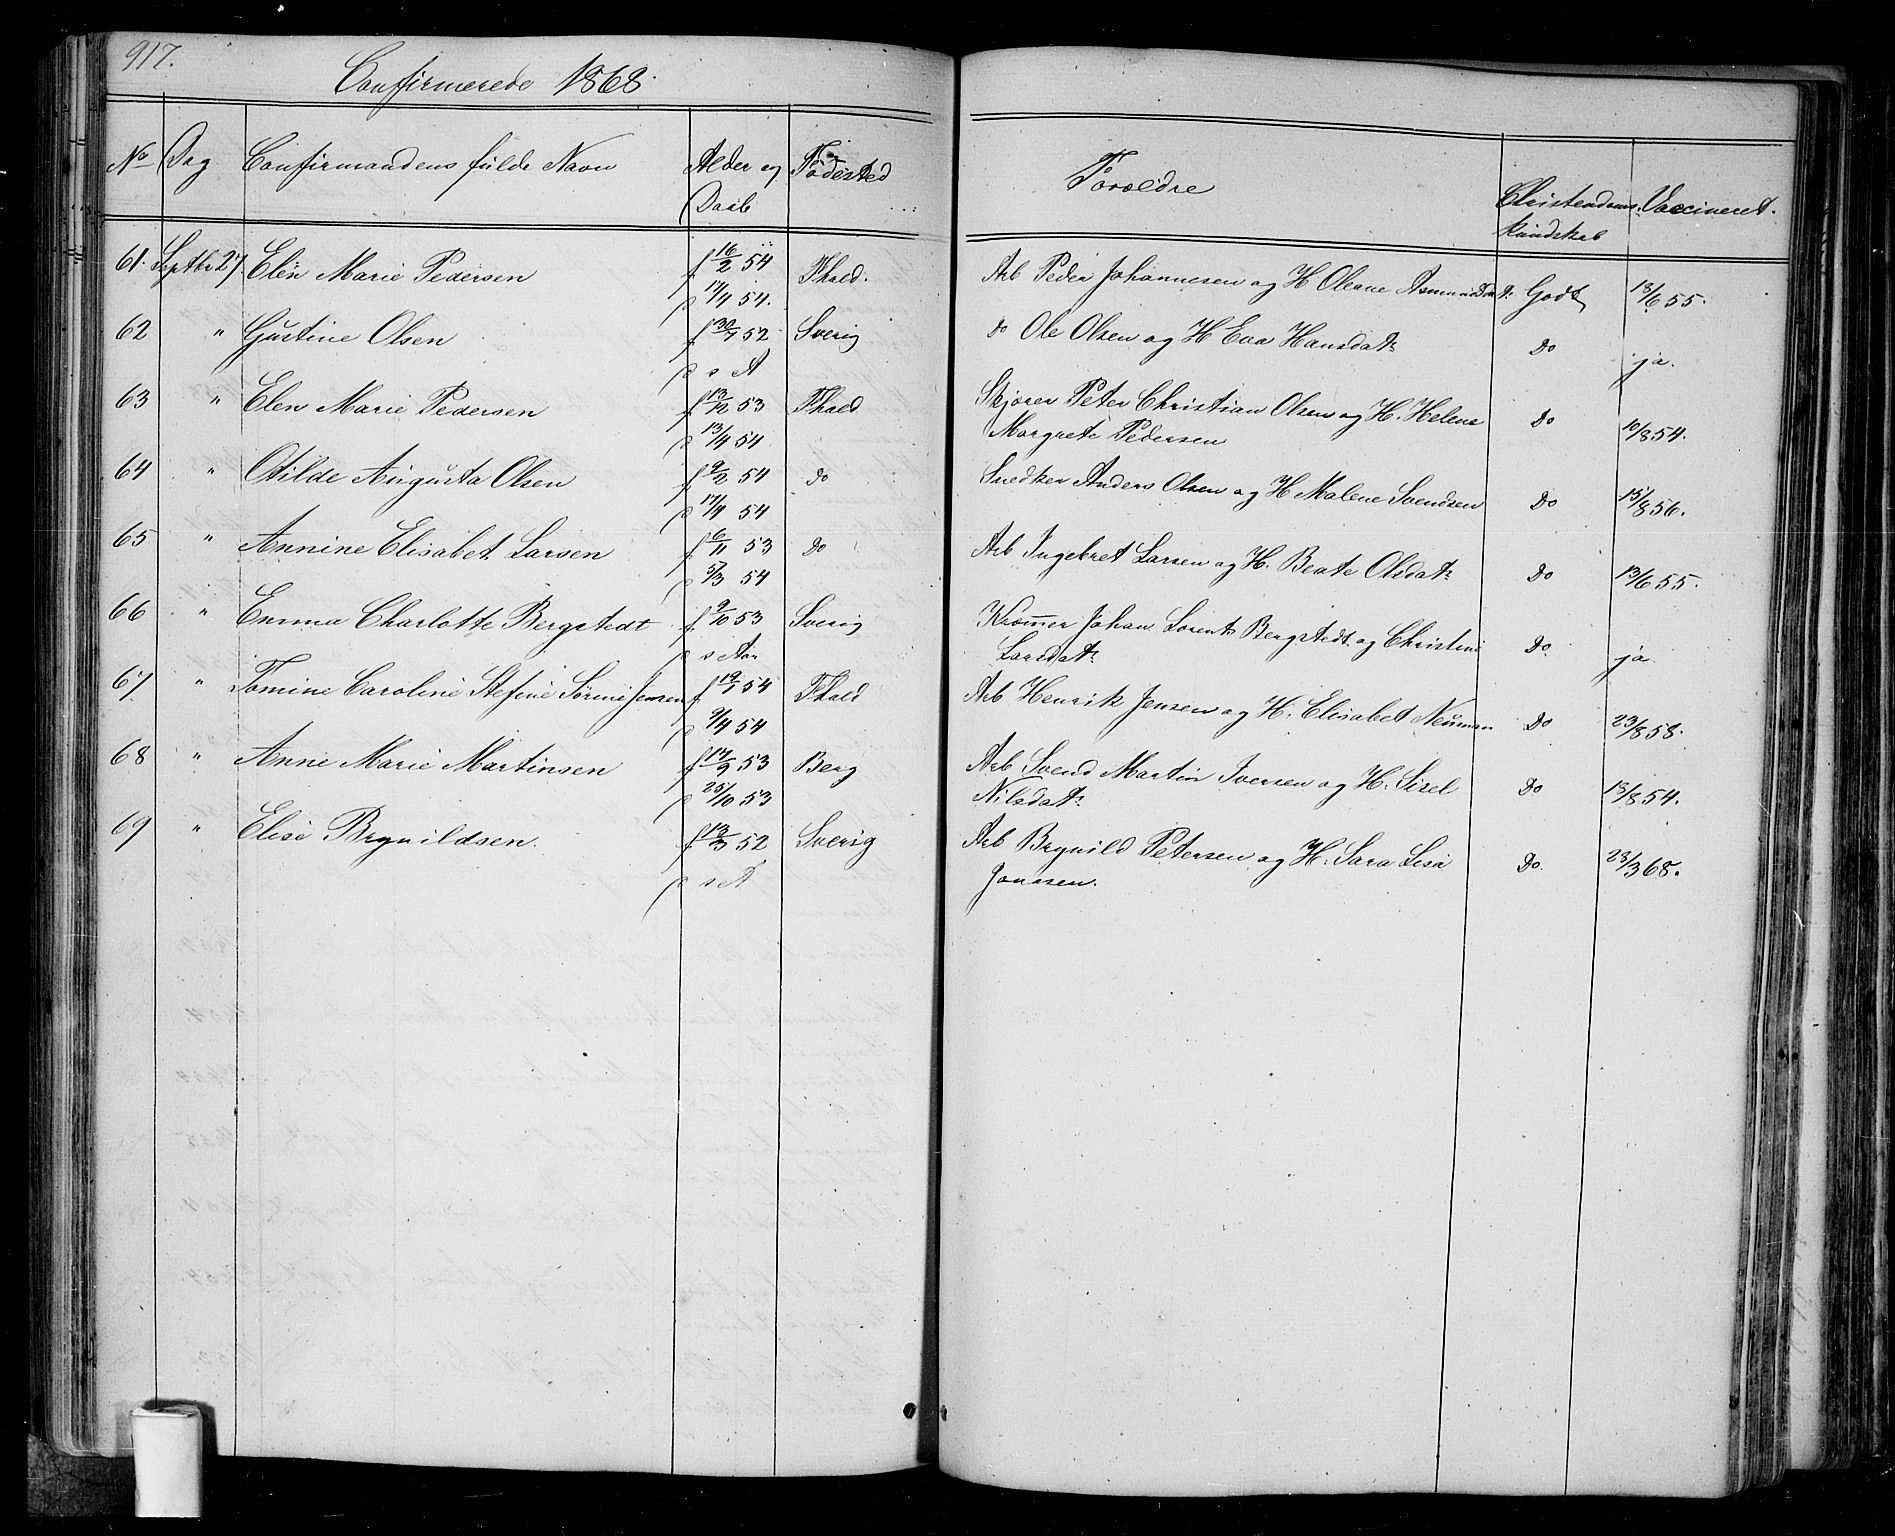 917.
Confirmerede 1868.
No Dag Confirmandens fulde Navn Alder og Daab Fødested Forældre Christendoms kundskab Vaccineret.
61. Septbr 27. Elen Marie Pedersen f 16/2 54 Fhald. Arb Peder Johannesen og H Oleane Godt 13/6 55.
62 " Gustine Olsen f 30/7 52 Sverig Do Ole Olsen og H Eva Hansdatr Do ja.
d s A
63 " Elen Marie Pedersen f 13/12 53 Fhald Skjører Peter Christian Olsen og H. Helene Do 10/8 54.
d 13/4 54 Margrete Pedersen
64 " Otilde Augusta Olsen f 9/2 54 Do Snedker Anders Olsen og H Malene Svendsen Do 15/8 56.
d 17/4 54
65 " Annine Elisabet Larsen f 6/11 53 Do Arb Ingebret Larsen og H. Beate Olsdatr Do 13/6 55.
d 5/3 54
66 " Emma Charlotte Bergstedt f 9/10 53 Sverig Kræmmer Johan Lorents Bergstedt og Christine Do ja
d s Aar Larsdatr
67. " Tomine Caroline Stefine Sørine Jensen f 19/1 54 Fhald Arb Henrik Jensen og H. Elisabet Neuman Do 23/8 58.
d 9/4 54
68 " Anne Marie Martinsen f 14/9 53 Berg Arb Svend Martin Iversen og H. Sisel Do 13/8 54.
d 25/10 53 Nilsdatr
69 " Elise Brynildsen. f 13/3 52 Sverig Arb Brynild Petersen og H. Sara Lisa Do. 23/3 68.
d s A Jonasen.